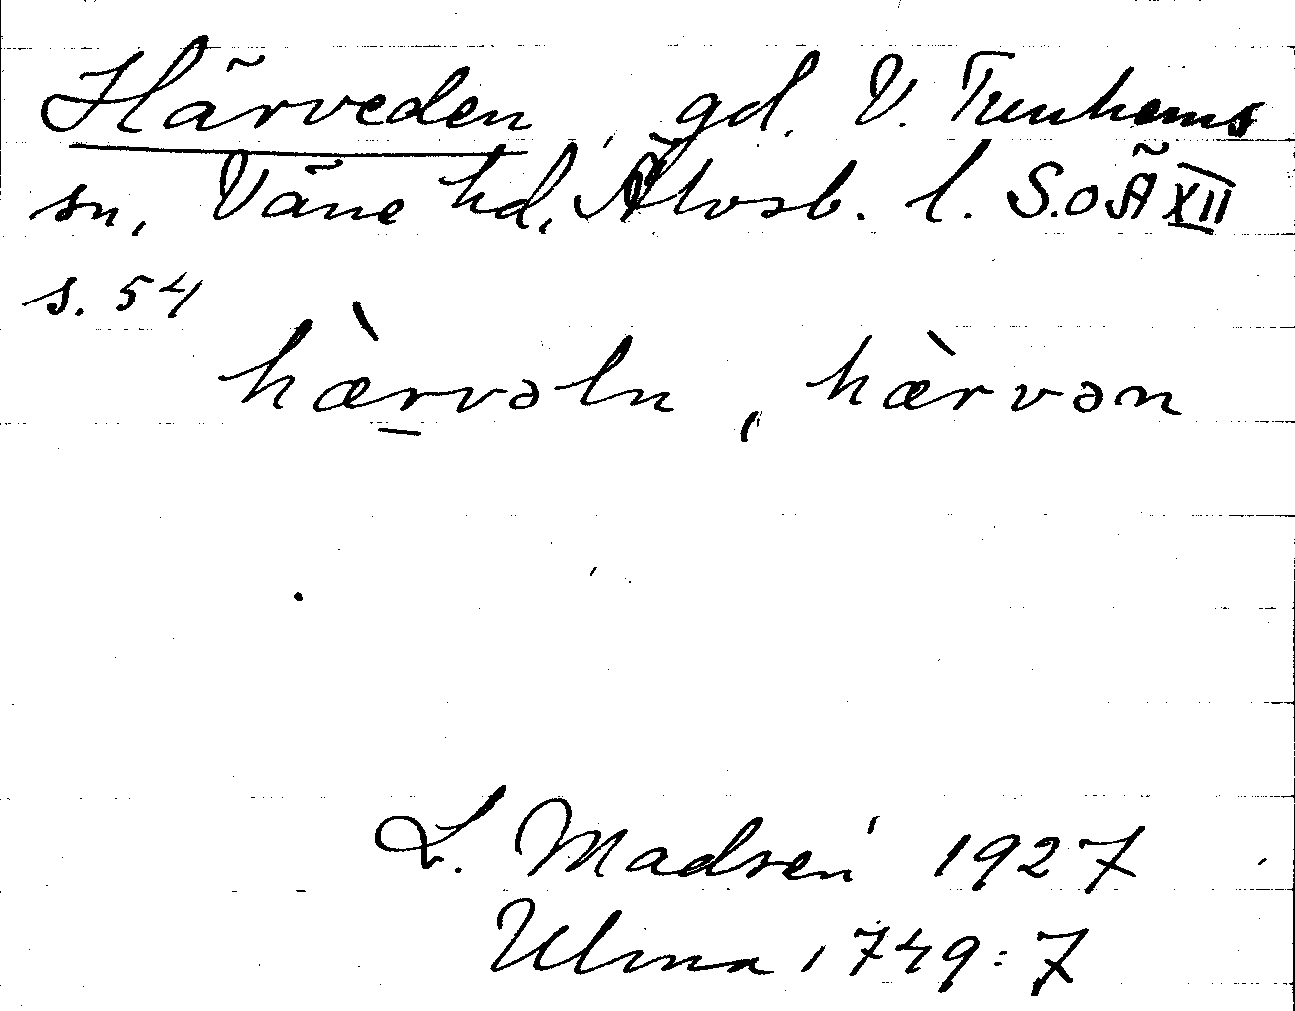 Härveden, gd. V. Tunhems
sn, Väne hd, Älvsb. l. S.o.Ä XII
s. 54
hæ̀rvəln, hæ̀rvən
L. Madsén 1927
Ulma 1749:7